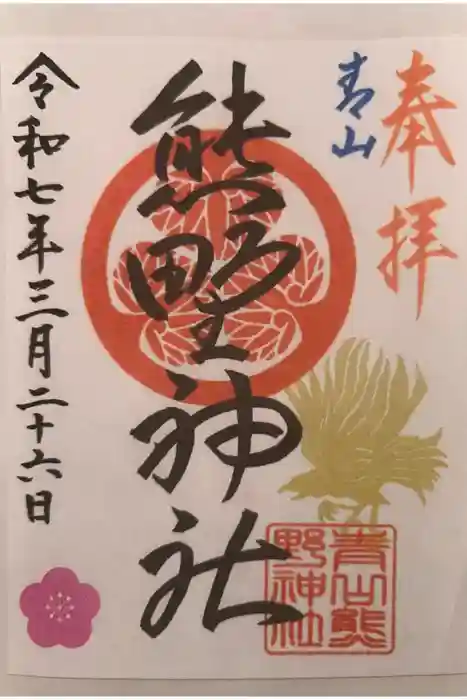 奉拝
青山
熊野神社
青山熊
野神社
令和七年三月二十六日